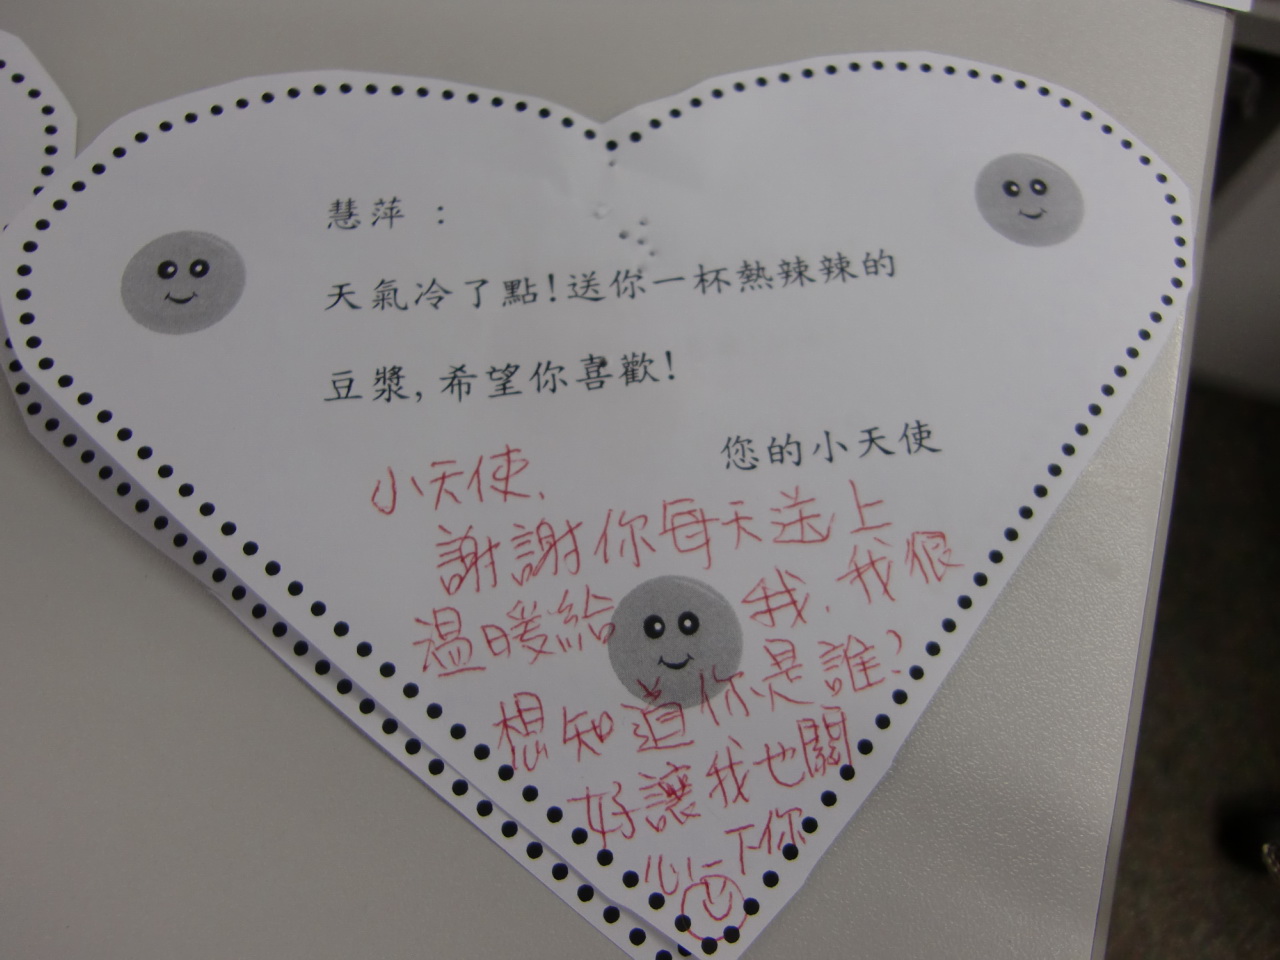 慧萍：
天氣冷了點!送你一杯熱辣辣的
豆漿,希望你喜歡!
您的小天使
小天使、
謝謝你每天送上
溫暖給我,我很
想知道你是誰?
好讓我也關
心一下你